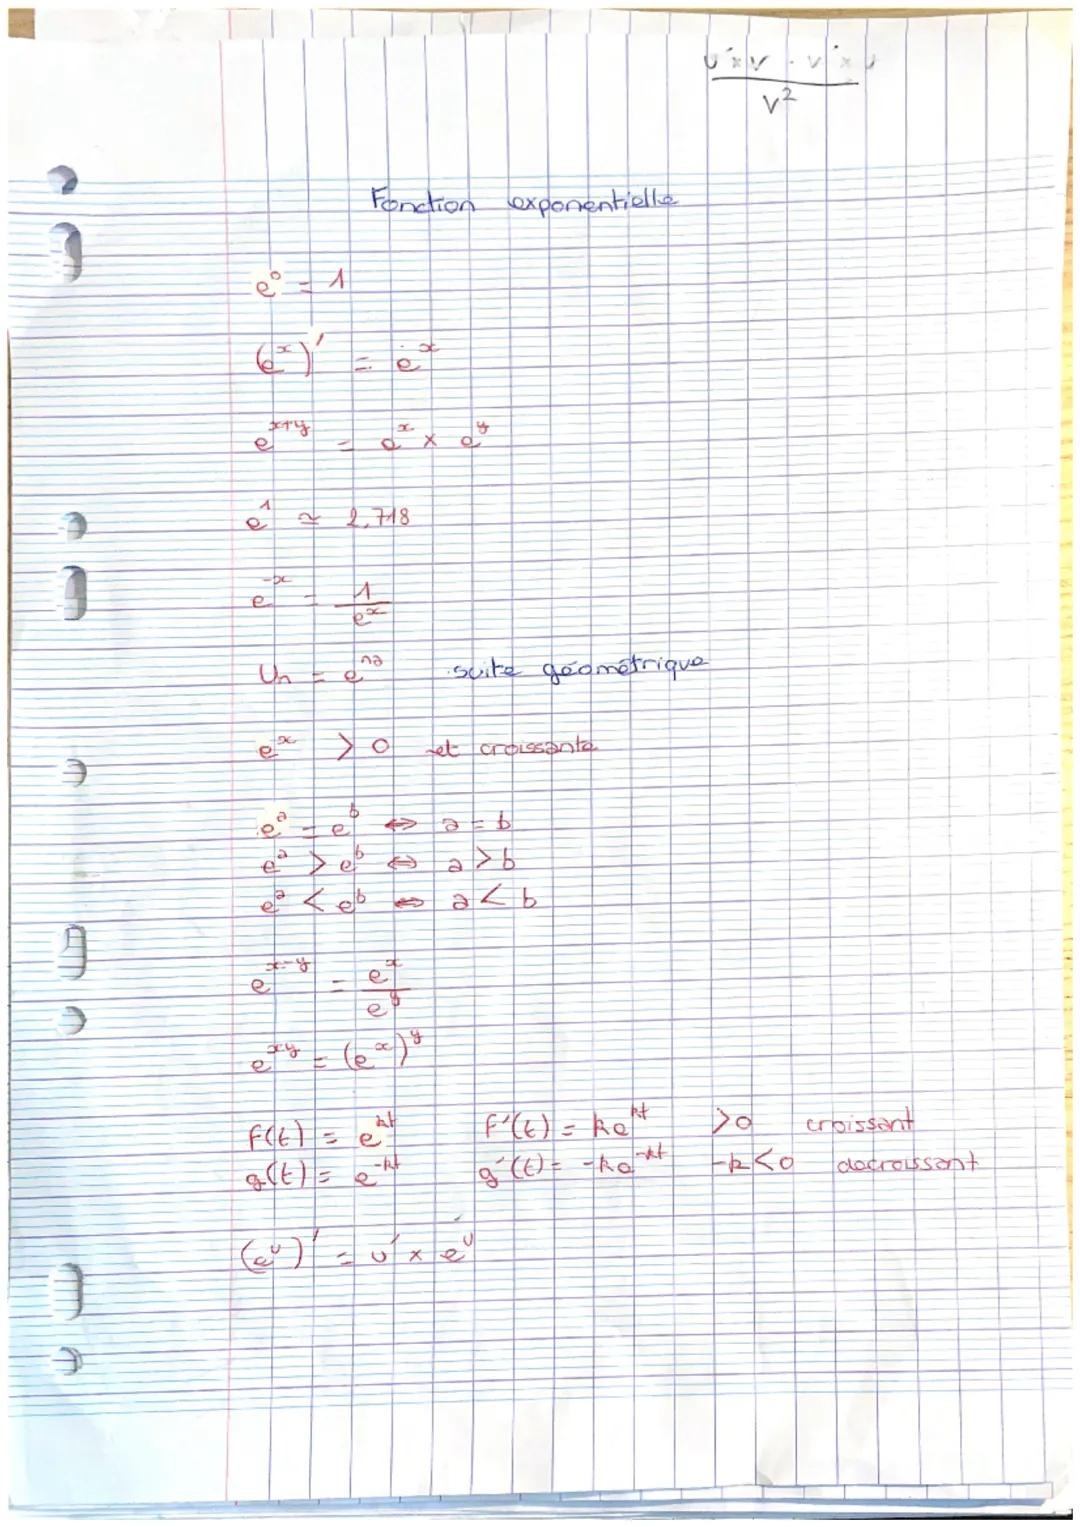 u'×v - v'×u
v²
Fonction exponentielle
e⁰ = 1
(eˣ)' = eˣ
eˣ⁺ʸ = eˣ × eʸ
e¹ ≃ 2,718
e⁻ˣ = 1/eˣ
Un = eⁿᵃ suite géométrique
eˣ > 0 et croissante
eᵃ = eᵇ ⇔ a = b
eᵃ > eᵇ ⇔ a > b
eᵃ < eᵇ ⇔ a < b
eˣ⁻ʸ = eˣ/eʸ
eˣʸ = (eˣ)ʸ
F(t) = eᵏᵗ F'(t) = keᵏᵗ >0 croissant
g(t) = e⁻ᵏᵗ g'(t) = -ke⁻ᵏᵗ -k<0 decroissant
(eᵘ)' = u' × eᵘ